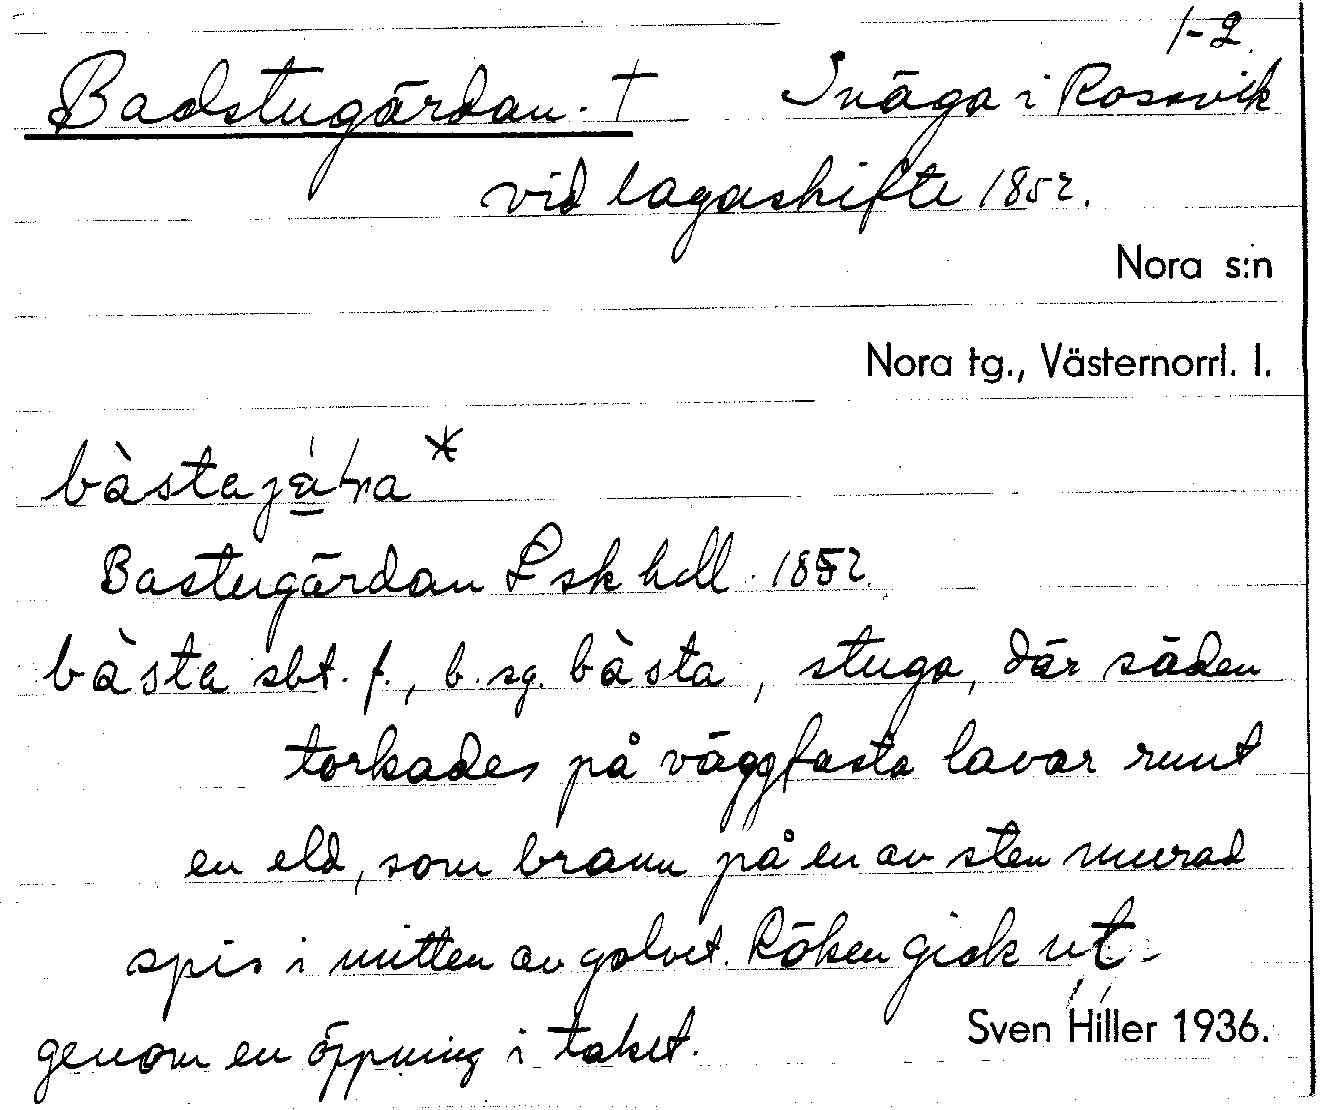 1-2.
Badstugärdan. † Inäga i Rossvik
vid lagaskifte 1852.
Nora s:n
Nora tg., Västernorrl. l.
bàsta *
Bastugärdan Lsk hdl. 1852.
bàsta sbt. f., b. sg. bàsta, stuga, där säden
torkades på väggfasta lavar runt
en eld, som brann på en av sten murad
spis i mitten av golvet. Röken gick ut
genom en öppning i taket.
Sven Hiller 1936.